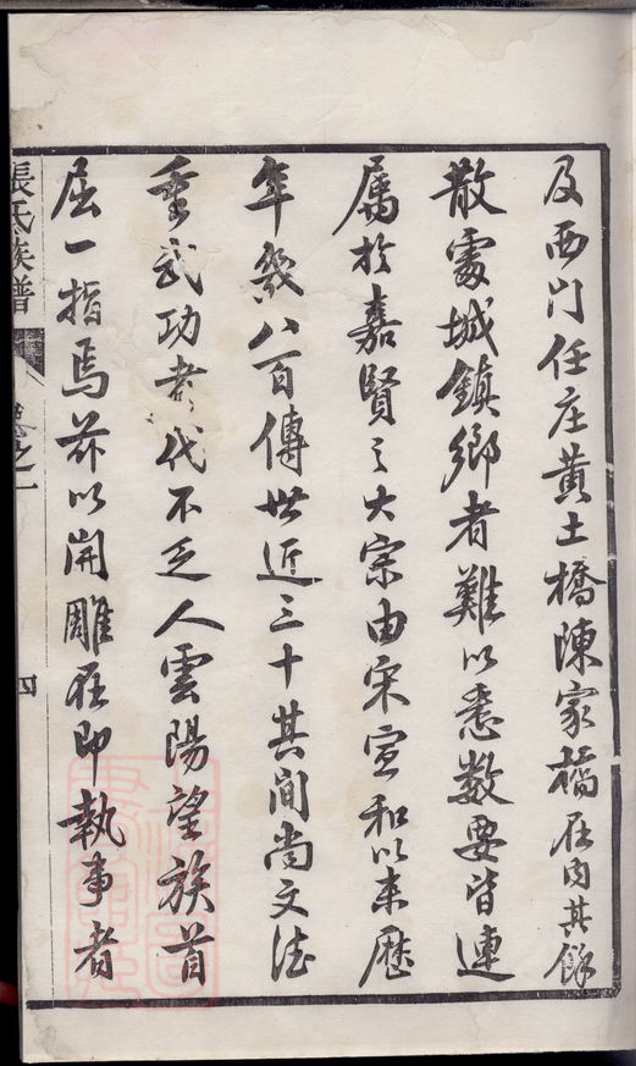 及西门任庄黄土橋陳家橋在内其餘
散處城鎮鄉者難以悉数要皆連
属於嘉賢之大宗由宋宣和以来歷
年幾八百傳世近三十其间尚文德
重武功者代不乏人雲陽望族首
屈一指焉茲以開雕在即執事者
張氏族譜
卷之一
四